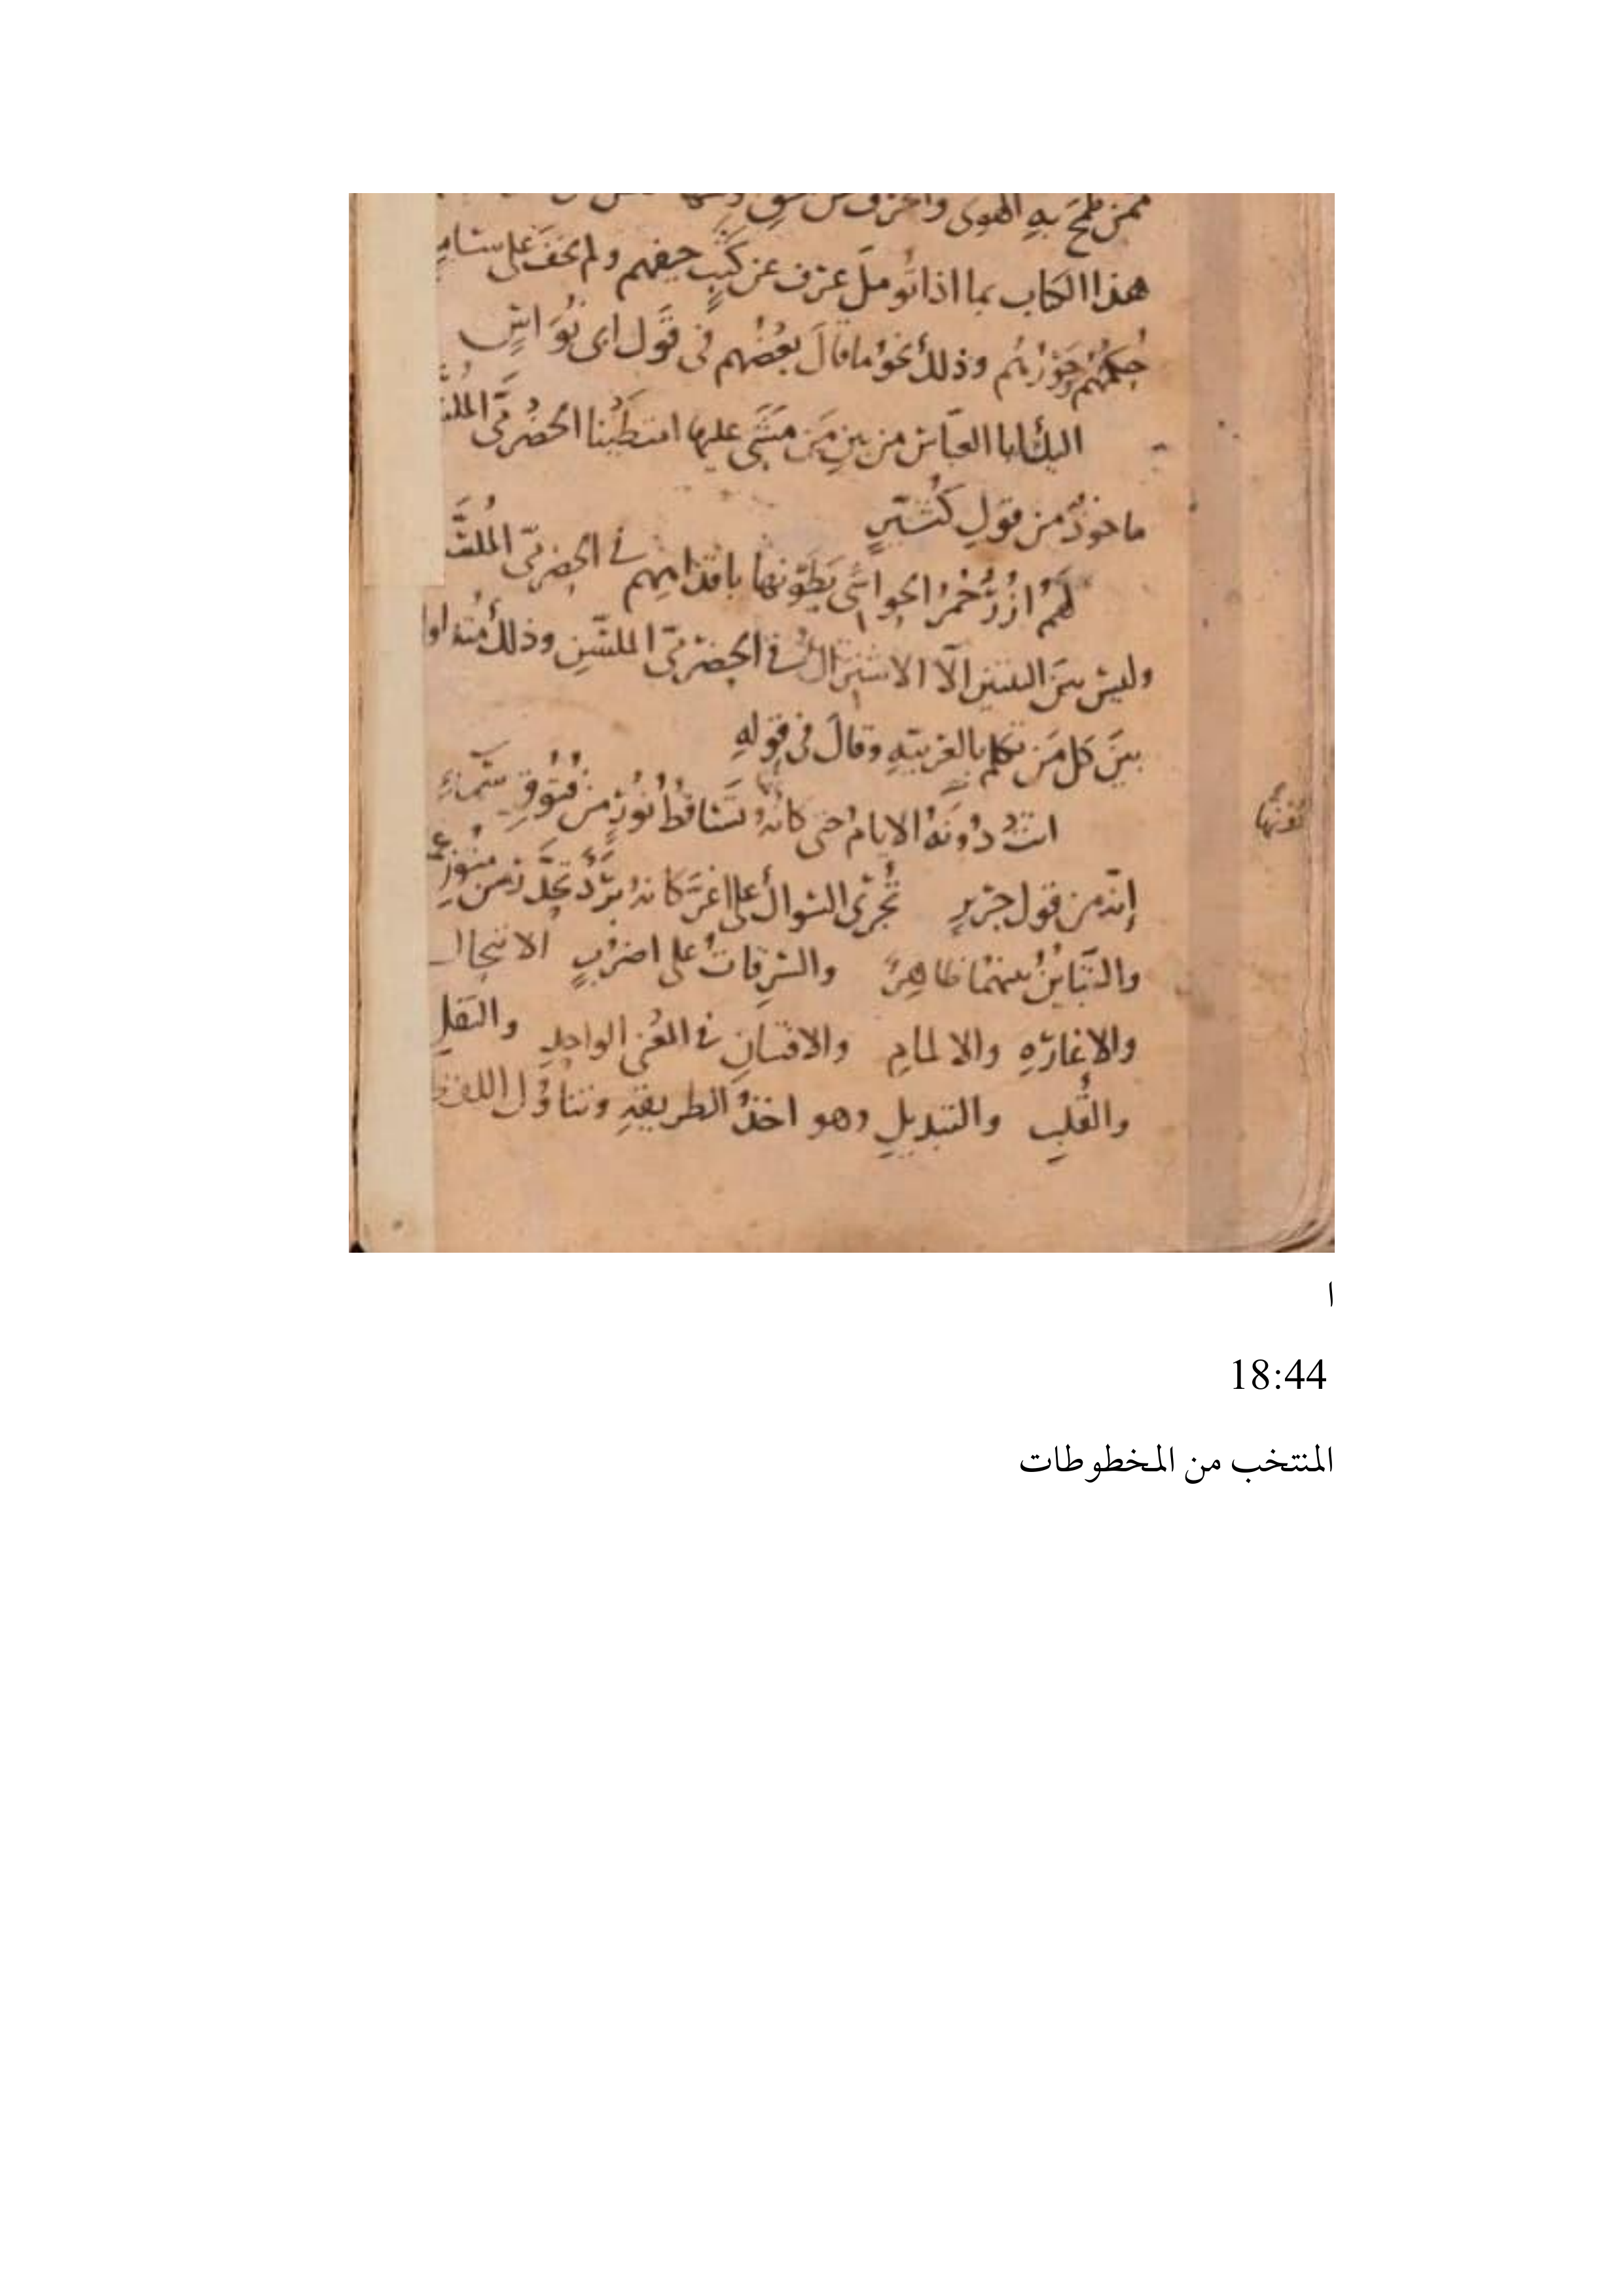 ممن طمح به الهوى وانحرف عن
هذا الكتاب بما اذا تُؤمل عرف عن كَثَبٍ حيفهم ولم يخفَ على
حُكمُهُم وجَوْرُهُم وذلك نحوُ ما قالَ بعضُهم فى قَول ابى نُوَاسٍ
اليك ابا العبّاس من بين مَن مَشَى عليها امتَطَينا الحَضْرَمىَّ المُلسَّ
ماخوذٌ من قولِ كُثَيّرٍ
لَهُمْ اُزُرٌ حُمْرُ الحواشى يَطَوْنها باقدامِهِم فى الحضرمىّ المُلسَّ
وليس بينَ البيتين الّا الاشتراكُ فى الحضرمىّ الملسّنِ وذلك
بينَ كل مَن تكلم بالعربيّةِ وقالَ فى قولهِ
اتت دُونَهُ الايامُ حتى كانهُ تَسَاقُطُ نُورٍ من فُتُوقِ سَمَاءِ
إنّه من قول جَريرٍ تُجْرِى السّواكَ على اغرَّ كانهُ بَرَدٌ تَحَدَّرَ من مُتُونِ
والتّبَايُنُ بينهُمَا ظاهِرٌ والسّرِقاتُ على اضرُبٍ الانتحال
والاغارَةِ والالمامِ والافتنانِ فى المعْنى الواحِدِ والنَقلِ
والقَلبِ والتبديلِ وهو اخذُ الطريقةِ وتناوُلُ اللفظ
ا
18:44
المنتخب من المخطوطات